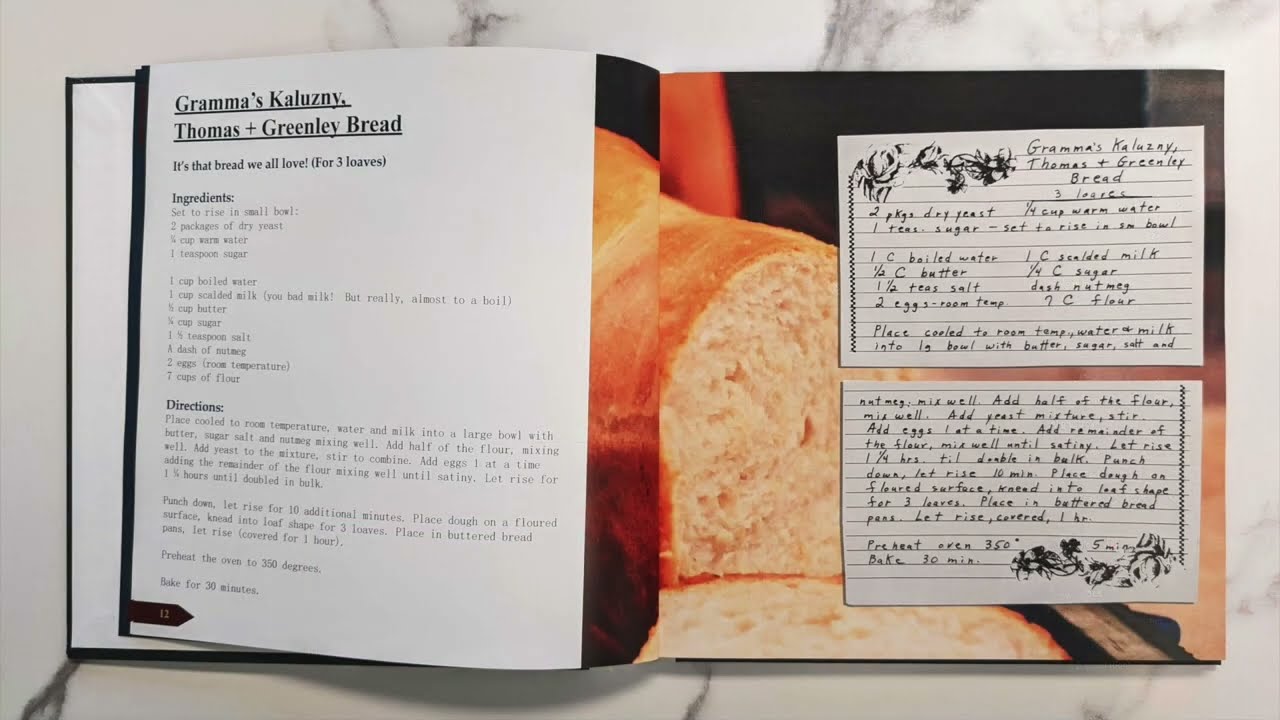 Gramma's Kaluzny,
Thomas + Greenley Bread
It's that bread we all love! (For 3 loaves)
Ingredients:
Set to rise in small bowl:
2 packages of dry yeast
¼ cup warm water
1 teaspoon sugar
1 cup boiled water
1 cup scalded milk (you bad milk! But really, almost to a boil)
½ cup butter
¼ cup sugar
1 ½ teaspoon salt
A dash of nutmeg
2 eggs (room temperature)
7 cups of flour
Directions:
Place cooled to room temperature, water and milk into a large bowl with
butter, sugar salt and nutmeg mixing well. Add half of the flour, mixing
well. Add yeast to the mixture, stir to combine. Add eggs 1 at a time
adding the remainder of the flour mixing well until satiny. Let rise for
1 ¼ hours until doubled in bulk.
Punch down, let rise for 10 additional minutes. Place dough on a floured
surface, knead into loaf shape for 3 loaves. Place in buttered bread
pans, let rise (covered for 1 hour).
Preheat the oven to 350 degrees.
Bake for 30 minutes.
12
Gramma's Kaluzny,
Thomas + Greenley
Bread
3 loaves
2 pkgs dry yeast ¼ cup warm water
1 teas. sugar - set to rise in sm bowl
1 C boiled water 1 C scalded milk
½ C butter ¼ C sugar
1½ teas salt dash nutmeg
2 eggs-room temp. 7 C flour
Place cooled to room temp., water & milk
into lg bowl with butter, sugar, salt and
nutmeg, mix well. Add half of the flour,
mix well. Add yeast mixture, stir.
Add eggs 1 at a time. Add remainder of
the flour, mix well until satiny. Let rise
1¼ hrs. til double in bulk. Punch
down, let rise 10 min. Place dough on
floured surface, knead into loaf shape
for 3 loaves. Place in buttered bread
pans. Let rise, covered, 1 hr.
Preheat oven 350° 5 min.
Bake 30 min.